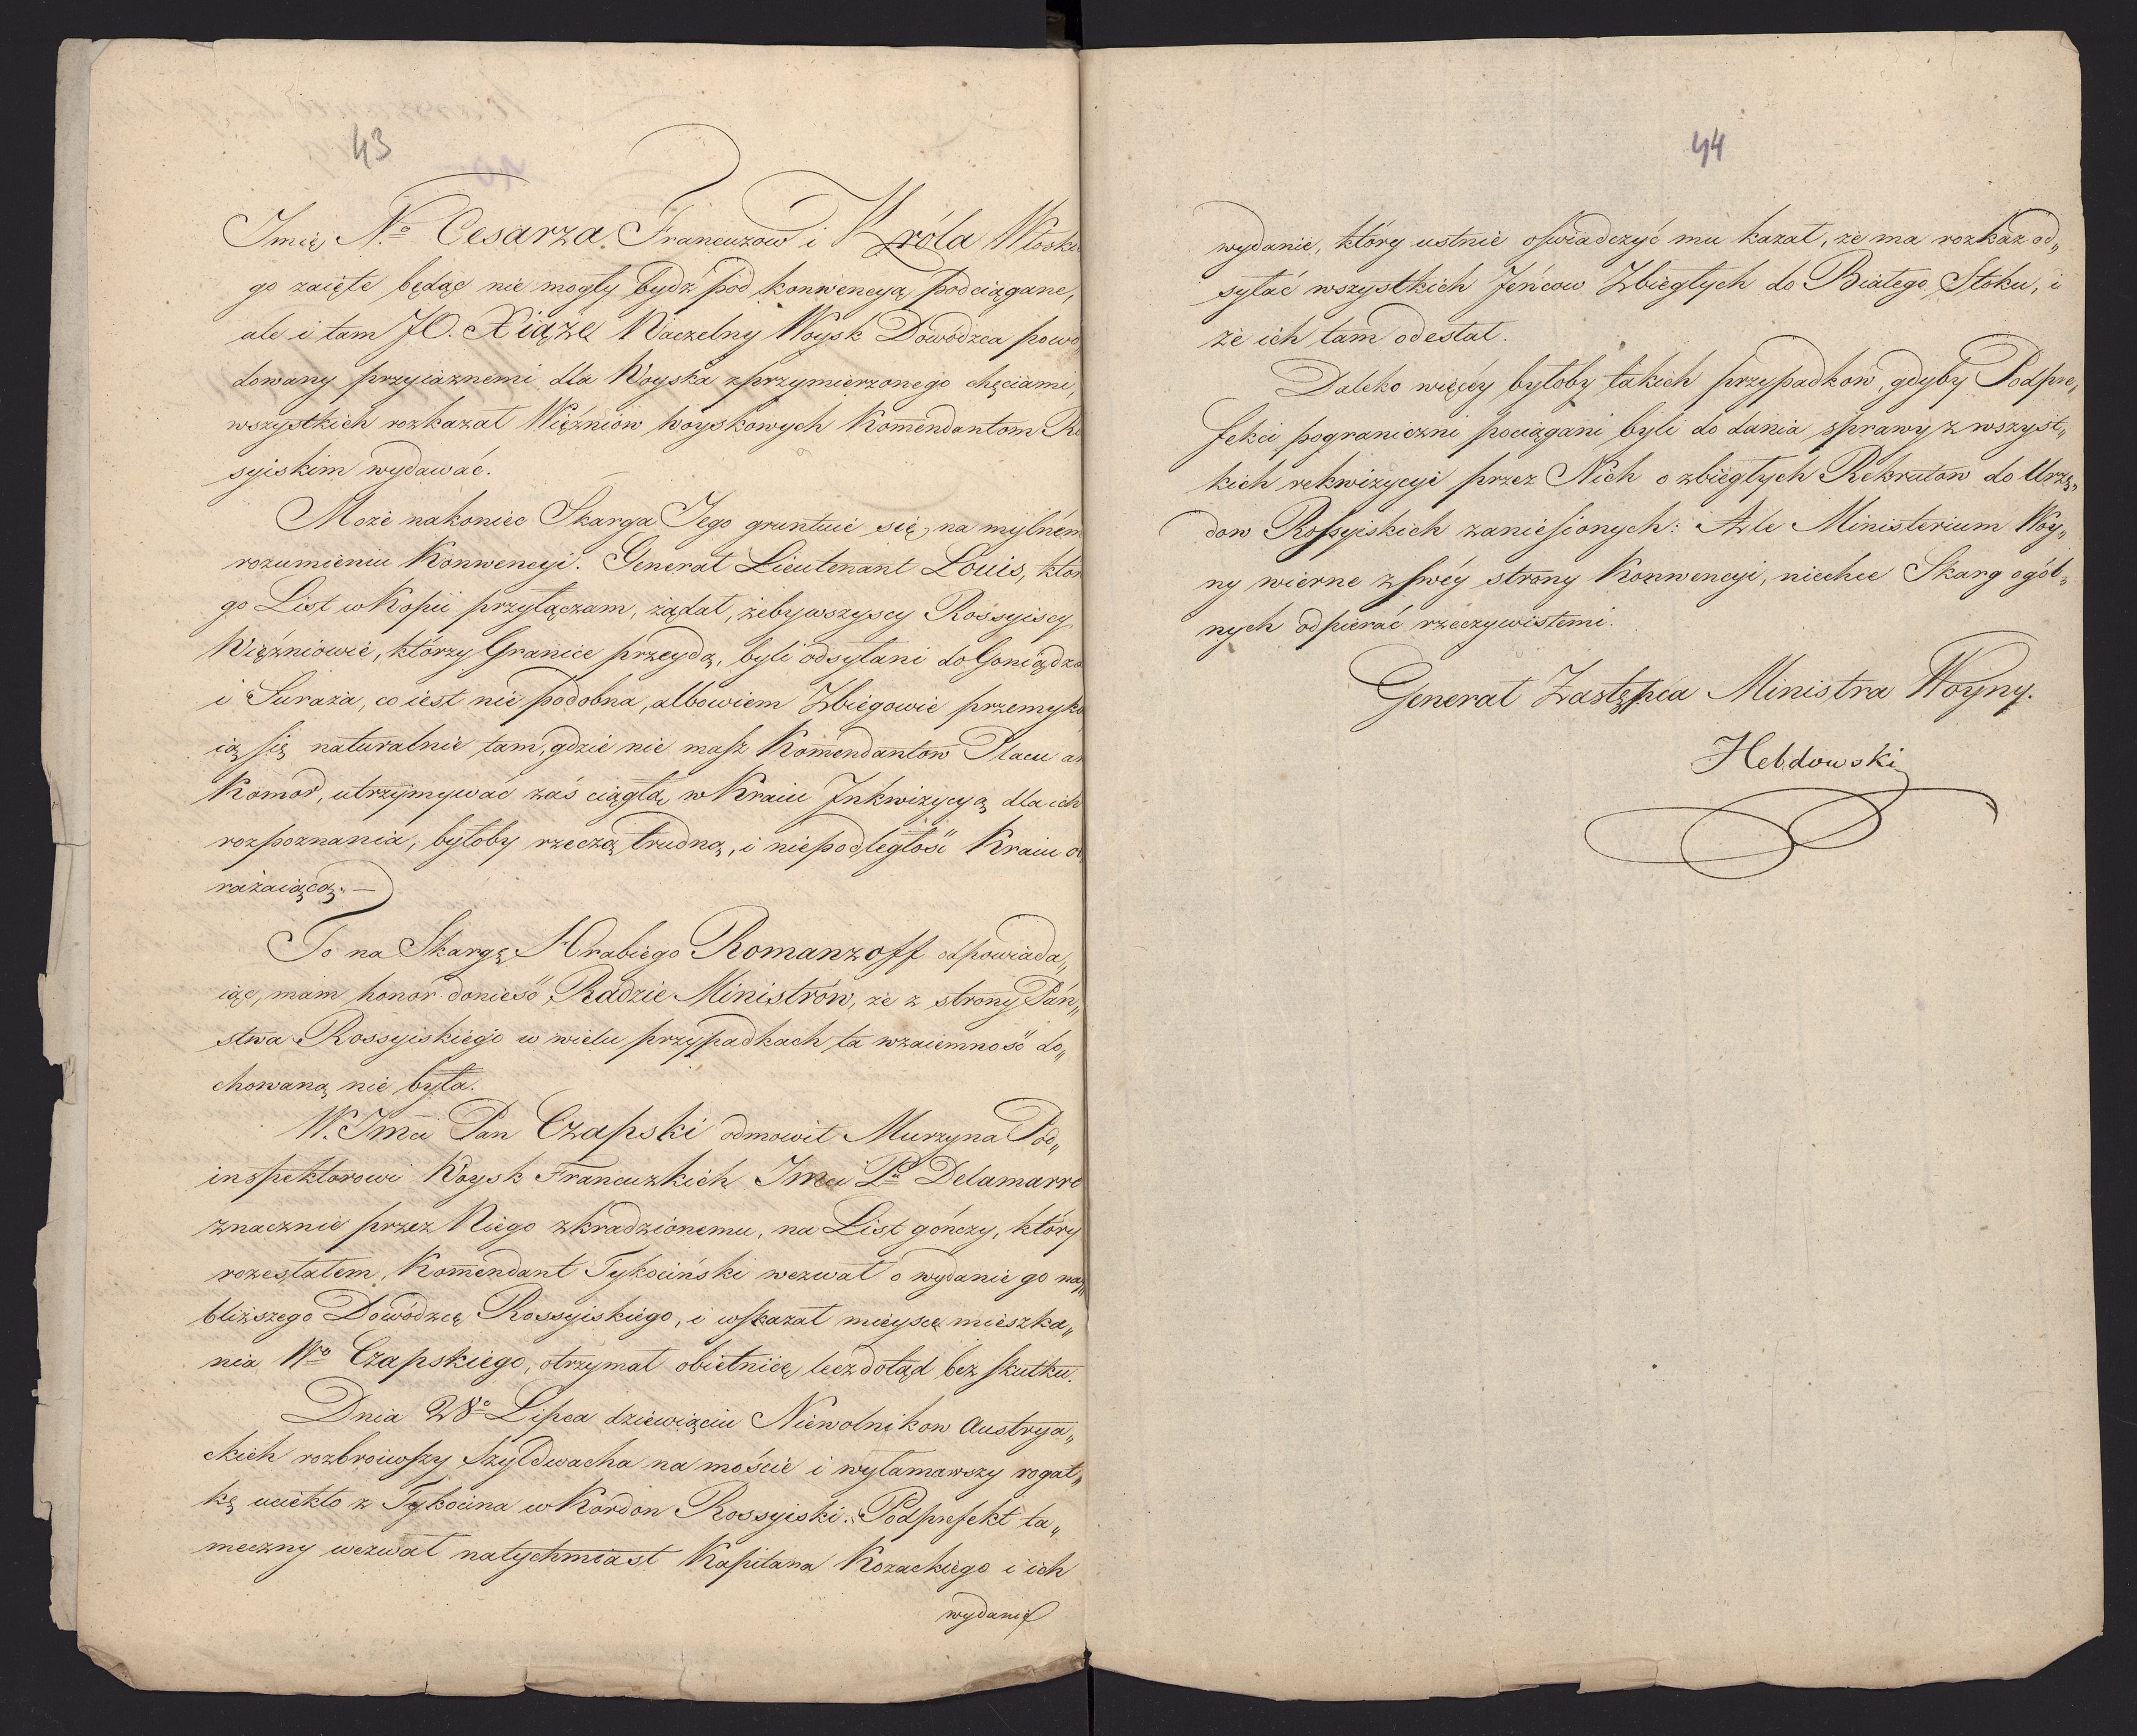 43
Imię N.º Cesarza Francuzow i Króla Włoskie
go zaięte będąc nie mogły bydź pod konwencyą podciągane,
ale i tam JO. Xiąże Naczelny Woysk Dowódzca powo
dowany przyiaznemi dla Woyska zprzymierzonego chęciami,
wszystkich rozkazał Więźniow woyskowych Komendantom Ro
syiskim wydawać.
Może nakoniec Skarga Jego gruntuie się na mylném
rozumieniu Konwencyi. Generał Lieutenant Louis, któr
go List w Kopii przyłączam, żądał, żeby wszyscy Rossyiscy
Więźniowie, którzy Granice przeydą, byli odsyłani do Goniądza
i Suraża, co iest nie podobna, albowiem Zbiegowie przemyka
ią się naturalnie tam, gdzie nie masz Komendantow Placu an
Komor, utrzymywać zaś ciągłą w Kraiu Inkwizycyą dla ich
rozpoznania, byłoby rzeczą trudną, i niepodległość Kraiu ob
rażaiącą. —
To na Skargę Hrabiego Romanzoff odpowiada„
iąc, mam honor donieść Radzie Ministrów, że z strony Pań„
stwa Rossyiskiégo w wielu przypadkach ta wzaiemność do„
chowaną nie była.
W. Jmci Pan Czapski odmowił Murzyna Pod„
inspektorowi Woysk Francuzkich Jmci Pu Delamarre
znacznie przez Niego zkradzionemu, na List gończy, który
rozesłałem, Komendant Tykociński wezwał o wydanie go nay„
bliższego Dowódzcę Rossyiskiego, i wskazał mieysce mieszka„
nia Wº Czapskiego, otrzymał obietnicę lecz dotąd bez skutku.
Dnia 28º Lipca dziewięciu Niewolnikow Austrya„
ckich rozbroiwszy Szyldwacha na moście i wyłamawszy rogat„
kę uciekło z Tykocina w Kordon Rossyiski. Podprefekt ta„
meczny wezwał natychmiast Kapitana Kozackiego i ich
wydanie
44
wydanie, który ustnie oświadczyć mu kazał, że ma rozkaz od„
syłać wszystkich Jeńcow Zbiegłych do Białego Stoku, i
że ich tam odesłał.
Daleko więcéy byłoby takich przypadkow, gdyby Podpre„
fekci pograniczni pociągani byli do dania sprawy z wszyst„
kich rekwizycyi przez Nich o zbiegłych Rekrutow do Urzę„
dow Rossyiskich zaniesionych: Ale Ministerium Woy„
ny wierne z swéy strony Konwencyi, niechce Skarg ogól„
nych odpierać rzeczywistemi.
Generał Zastępca Ministra Woyny.
Hebdowski